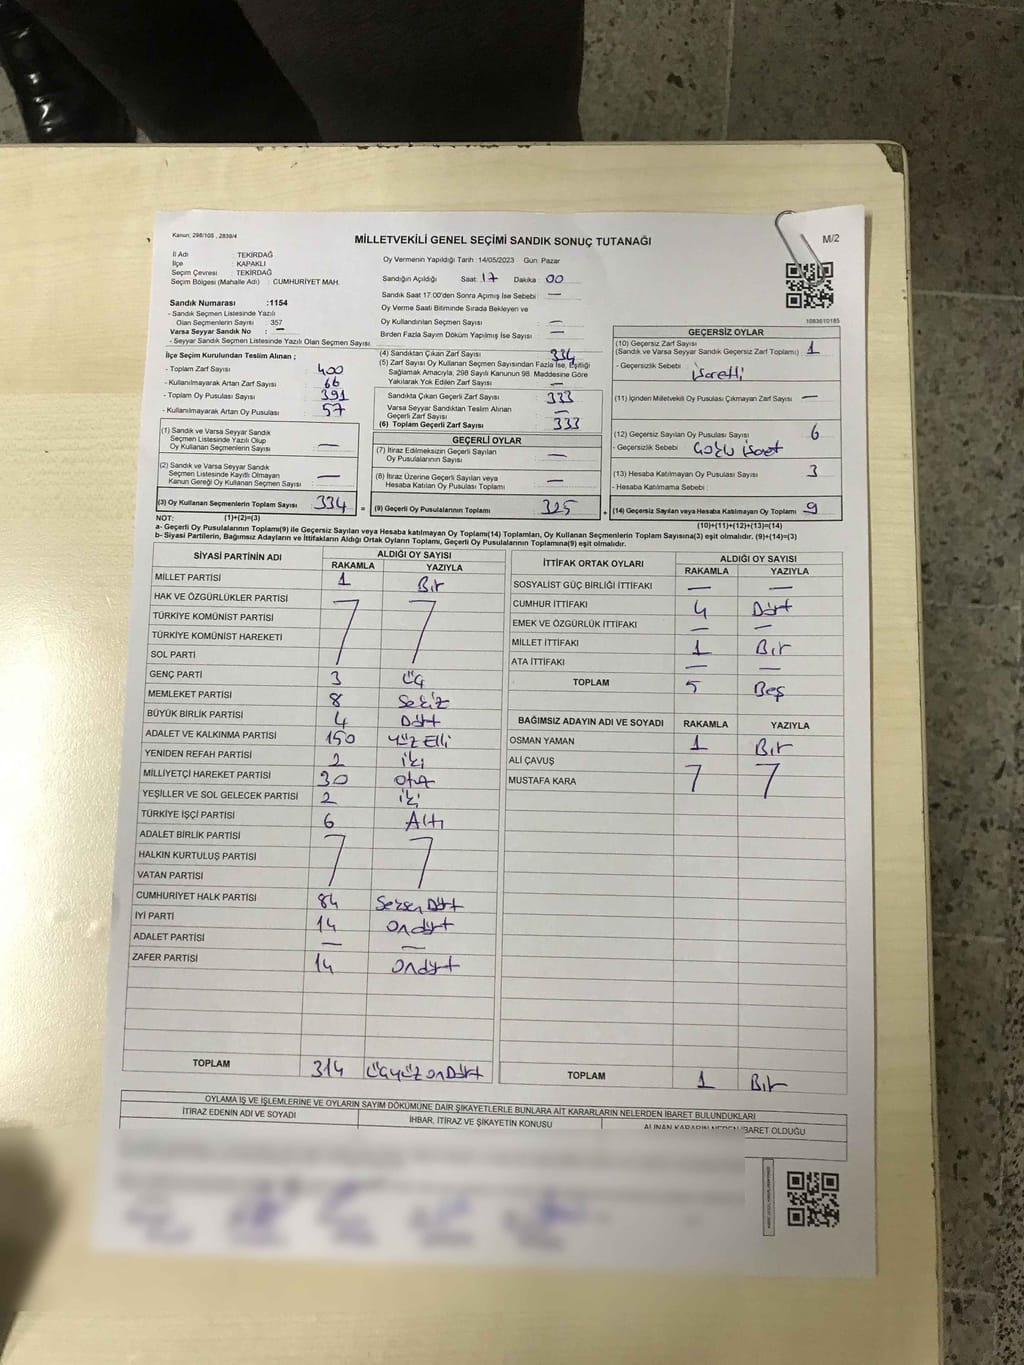 Kanun; 298/105 , 2839/4
MİLLETVEKİLİ GENEL SEÇİMİ SANDIK SONUÇ TUTANAĞI
M/2
İl Adı : TEKİRDAĞ
İlçe : KAPAKLI
Seçim Çevresi : TEKİRDAĞ
Seçim Bölgesi (Mahalle Adı) : CUMHURİYET MAH.
Oy Vermenin Yapıldığı Tarih : 14/05/2023 Gün: Pazar
Sandığın Açıldığı Saat: 17 Dakika : 00
Sandık Saat 17:00'den Sonra Açımış İse Sebebi : —
Oy Verme Saati Bitiminde Sırada Bekleyen ve
Oy Kullandırılan Seçmen Sayısı : —
Birden Fazla Sayım Döküm Yapılmış İse Sayısı : —
Sandık Numarası :1154
- Sandık Seçmen Listesinde Yazılı
Olan Seçmenlerin Sayısı : 357
Varsa Seyyar Sandık No : —
- Seyyar Sandık Seçmen Listesinde Yazılı Olan Seçmen Sayısı
1083610185
İlçe Seçim Kurulundan Teslim Alınan ;
- Toplam Zarf Sayısı : 400
- Kullanılmayarak Artan Zarf Sayısı : 66
- Toplam Oy Pusulası Sayısı : 391
- Kullanılmayarak Artan Oy Pusulası : 57
(1) Sandık ve Varsa Seyyar Sandık
Seçmen Listesinde Yazılı Olup
Oy Kullanan Seçmenlerin Sayısı : —
(2) Sandık ve Varsa Seyyar Sandık
Seçmen Listesinde Kayıtlı Olmayan
Kanun Gereği Oy Kullanan Seçmen Sayısı : —
(3) Oy Kullanan Seçmenlerin Toplam Sayısı : 334
(1)+(2)=(3)
(4) Sandıktan Çıkan Zarf Sayısı : 334
(5) Zarf Sayısı Oy Kullanan Seçmen Sayısından Fazla İse, Eşitliği
Sağlamak Amacıyla, 298 Sayılı Kanunun 98. Maddesine Göre
Yakılarak Yok Edilen Zarf Sayısı : —
Sandıkta Çıkan Geçerli Zarf Sayısı : 333
Varsa Seyyar Sandıktan Teslim Alınan
Geçerli Zarf Sayısı : —
(6) Toplam Geçerli Zarf Sayısı : 333
GEÇERLİ OYLAR
(7) İtiraz Edilmeksizin Geçerli Sayılan
Oy Pusulalarının Sayısı : —
(8) İtiraz Üzerine Geçerli Sayılan veya
Hesaba Katılan Oy Pusulası Toplamı : —
= (9) Geçerli Oy Pusulalarının Toplamı : 325
GEÇERSİZ OYLAR
(10) Geçersiz Zarf Sayısı : 1
(Sandık ve Varsa Seyyar Sandık Geçersiz Zarf Toplamı)
- Geçersizlik Sebebi : işaretli
(11) İçinden Milletvekili Oy Pusulası Çıkmayan Zarf Sayısı : —
(12) Geçersiz Sayılan Oy Pusulası Sayısı : 6
- Geçersizlik Sebebi : Çoklu işaret
(13) Hesaba Katılmayan Oy Pusulası Sayısı : 3
- Hesaba Katılmama Sebebi :
+ (14) Geçersiz Sayılan veya Hesaba Katılmayan Oy Toplamı : 9
(10)+(11)+(12)+(13)=(14)
NOT:
a- Geçerli Oy Pusulalarının Toplamı(9) ile Geçersiz Sayılan veya Hesaba katılmayan Oy Toplamı(14) Toplamları, Oy Kullanan Seçmenlerin Toplam Sayısına(3) eşit olmalıdır. (9)+(14)=(3)
b- Siyasi Partilerin, Bağımsız Adayların ve İttifakların Aldığı Ortak Oyların Toplamı, Geçerli Oy Pusulalarının Toplamına(9) eşit olmalıdır.
SİYASİ PARTİNİN ADI ALDIĞI OY SAYISI
RAKAMLA YAZIYLA
MİLLET PARTİSİ 1 Bir
HAK VE ÖZGÜRLÜKLER PARTİSİ
TÜRKİYE KOMÜNİST PARTİSİ
TÜRKİYE KOMÜNİST HAREKETİ
SOL PARTİ
GENÇ PARTİ 3 üç
MEMLEKET PARTİSİ 8 Sekiz
BÜYÜK BİRLİK PARTİSİ 4 Dört
ADALET VE KALKINMA PARTİSİ 150 yüz Elli
YENİDEN REFAH PARTİSİ 2 iki
MİLLİYETÇİ HAREKET PARTİSİ 30 otuz
YEŞİLLER VE SOL GELECEK PARTİSİ 2 iki
TÜRKİYE İŞÇİ PARTİSİ 6 Altı
ADALET BİRLİK PARTİSİ
HALKIN KURTULUŞ PARTİSİ
VATAN PARTİSİ
CUMHURİYET HALK PARTİSİ 84 Seksen Dört
İYİ PARTİ 14 ondört
ADALET PARTİSİ — —
ZAFER PARTİSİ 14 ondört
TOPLAM 314 üçyüz onDört
İTTİFAK ORTAK OYLARI ALDIĞI OY SAYISI
RAKAMLA YAZIYLA
SOSYALİST GÜÇ BİRLİĞİ İTTİFAKI — —
CUMHUR İTTİFAKI 4 Dört
EMEK VE ÖZGÜRLÜK İTTİFAKI — —
MİLLET İTTİFAKI 1 Bir
ATA İTTİFAKI — —
TOPLAM 5 Beş
BAĞIMSIZ ADAYIN ADI VE SOYADI RAKAMLA YAZIYLA
OSMAN YAMAN 1 Bir
ALİ ÇAVUŞ
MUSTAFA KARA
TOPLAM 1 Bir
OYLAMA İŞ VE İŞLEMLERİNE VE OYLARIN SAYIM DÖKÜMÜNE DAİR ŞİKAYETLERLE BUNLARA AİT KARARLARIN NELERDEN İBARET BULUNDUKLARI
İTİRAZ EDENİN ADI VE SOYADI İHBAR, İTİRAZ VE ŞİKAYETİN KONUSU ALINAN KARARIN NEDEN İBARET OLDUĞU